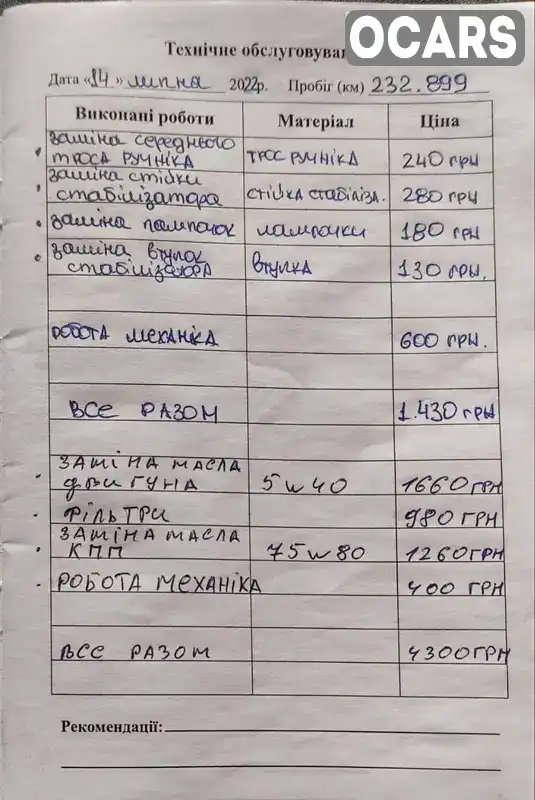 OCARS
Технічне обслуговува
Дата «14» липна 2022р. Пробіг (км) 232.899
Виконані роботи Матеріал Ціна
заміна середнього
троса ручніка трос ручніка 240 грн
заміна стійки
стабілізатора стійка стабіліза. 280 грн
заміна лампочок лампочки 180 грн
заміна втулок
стабілізатора втулка 130 грн.
робота механіка 600 грн.
все разом 1.430 грн
заміна масла
двигуна 5w40 1660 грн
фільтри 980 грн
заміна масла
кпп 75w80 1260 грн
робота механіка 400 грн
все разом 4300 грн
Рекомендації: